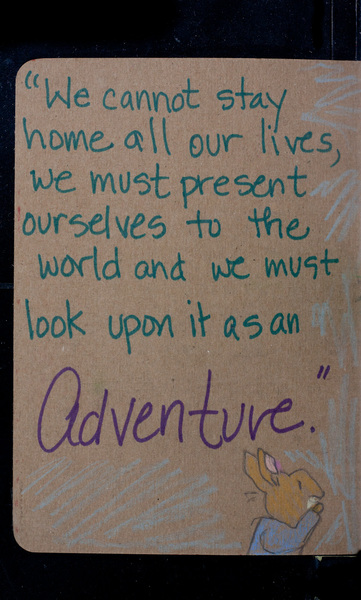 "We cannot stay
home all our lives,
we must present
ourselves to the
world and we must
look upon it as an
Adventure."